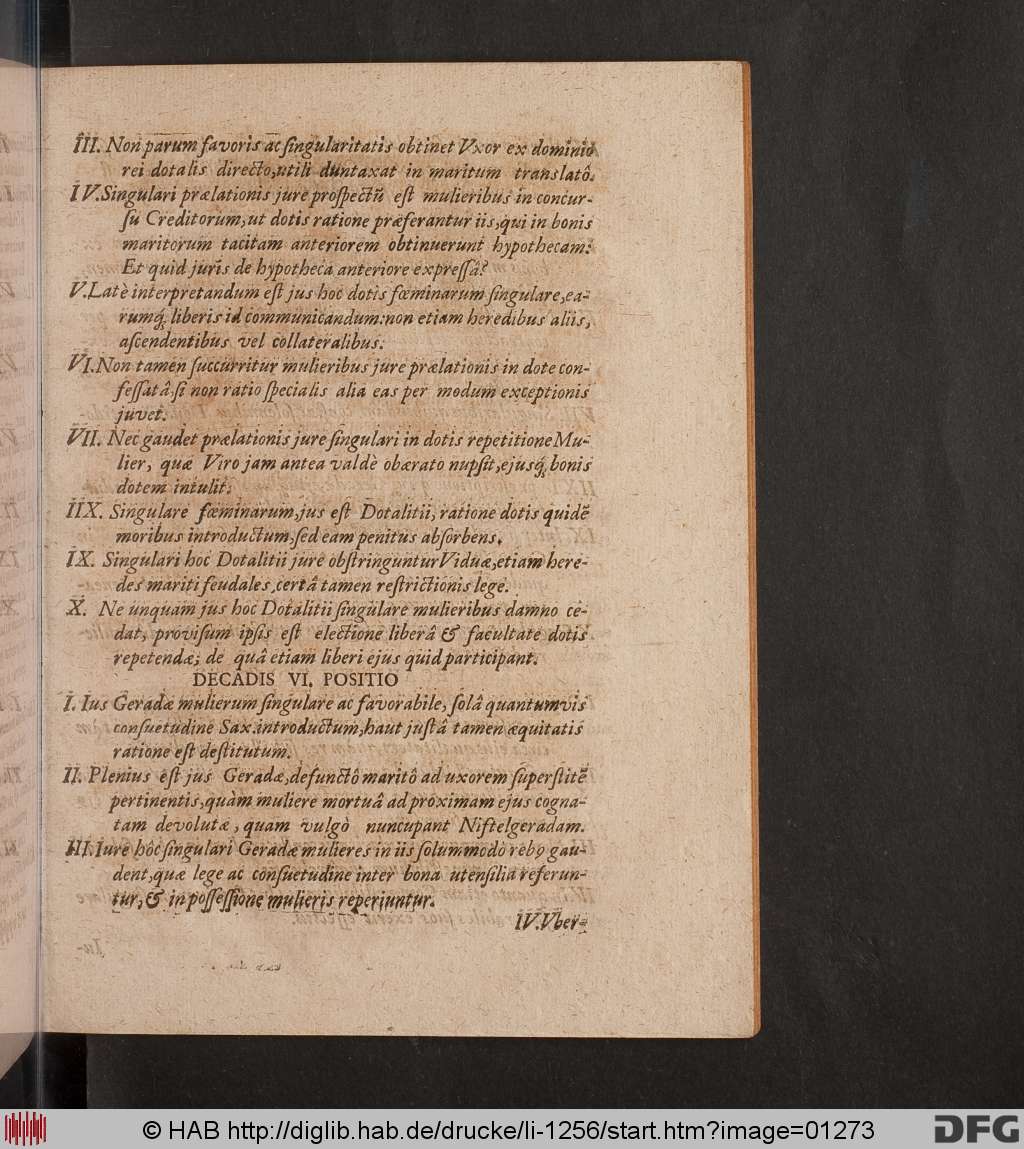 III. Non parum favoris ac ſingularitatis obtinet Vxor ex dominio
rei dotalis directo, utili duntaxat in maritum translatô.
IV. Singulari prælationis jure proſpectũ eſt mulieribus in concur-
ſu Creditorum, ut dotis ratione præferantur iis, qui in bonis
maritorum tacitam anteriorem obtinuerunt hypothecam:
Et quid juris de hypotheca anteriore expreſſâ?
V. Latè interpretandum eſt jus hoc dotis fœminarum ſingulare, ea-
rumq́; liberis id communicandum: non etiam heredibus aliis,
aſcendentibus vel collateralibus.
VI. Non tamen ſuccurritur mulieribus jure prælationis in dote con-
feſſatâ, ſi non ratio ſpecialis alia eas per modum exceptionis
juvet.
VII. Nec gaudet prælationis jure ſingulari in dotis repetitione Mu-
lier, quæ Viro jam antea valdè obærato nupſit, ejusq́; bonis
dotem intulit.
IIX. Singulare fœminarum, jus eſt Dotalitii, ratione dotis quidẽ
moribus introductum, ſed eam penitus abſorbens.
IX. Singulari hoc Dotalitii jure obſtringuntur Viduæ, etiam here-
des mariti feudales, certâ tamen reſtrictionis lege.
X. Ne unquam jus hoc Dotalitii ſingulare mulieribus damno ce-
dat, proviſum ipſis eſt electione liberâ & facultate dotis
repetendæ; de quâ etiam liberi ejus quid participant.
DECADIS VI. POSITIO
I. Ius Geradæ mulierum ſingulare ac favorabile, ſolâ quantumvis
conſuetudine Sax. introductum, haut juſtâ tamen æquitatis
ratione eſt deſtitutum.
II. Plenius eſt jus Geradæ, defunctô maritô ad uxorem ſuperſtitẽ
pertinentis, quàm muliere mortuâ ad proximam ejus cogna-
tam devolutæ, quam vulgò nuncupant Niftelgeradam.
III. Iure hôc ſingulari Geradæ mulieres in iis ſolummodo rebꝰ gau-
dent, quæ lege ac conſuetudine inter bona utenſilia referun-
tur, & in poſſeſſione mulieris reperiuntur.
IV. Vber-
© HAB http://diglib.hab.de/drucke/li-1256/start.htm?image=01273
DFG